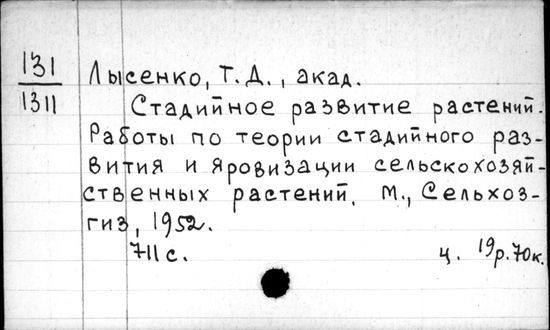 131
1311
Лысенко, Т. Д., акад.
Стадийное развитие растений.
Работы по теории стадийного раз-
вития и яровизации сельскохозяй-
ственных растений. М., Сельхоз-
гиз, 1952.
711 с.
ц. 19р.70к.